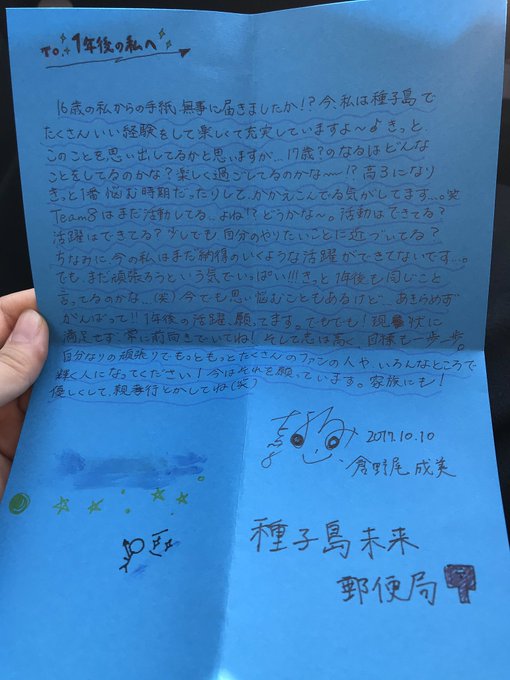 TO. 1年後の私へ
16歳の私からの手紙、無事に届きましたか!?今、私は種子島で
たくさんいい経験をして楽しくて充実していますよ〜♪きっと、
このことを思い出してるかと思いますが…17歳?のなるはどんな
ことをしてるのかな?楽しく過ごしてるのかな〜!?高3になり
きっと1番悩む時期だったりして、かかえこんでる気がしてます…。笑
Team8はまだ活動してる、よね!?どうかな〜。活動はできてる?
活躍はできてる?少しでも自分のやりたいことに近づいてる?
ちなみに、今の私はまだ納得のいくような活躍ができてないです…。
でも、まだ頑張ろうという気でいっぱい!!!きっと1年後も同じこと
言ってるのかな…(笑)今でも思い悩むこともあるけど、あきらめず
がんばって!!1年後の活躍、願ってます。でもでも!現状に
満足せず、常に前向きでいてね!そして志は高く、目標も一歩一歩。
自分なりの頑張りでもっともっとたくさんのファンの人や、いろんなところで
輝く人になってください!今はそれを願っています。家族にも!
優しくして、親孝行とかしてね(笑)
2017.10.10
倉野尾 成美
種子島未来
郵便局